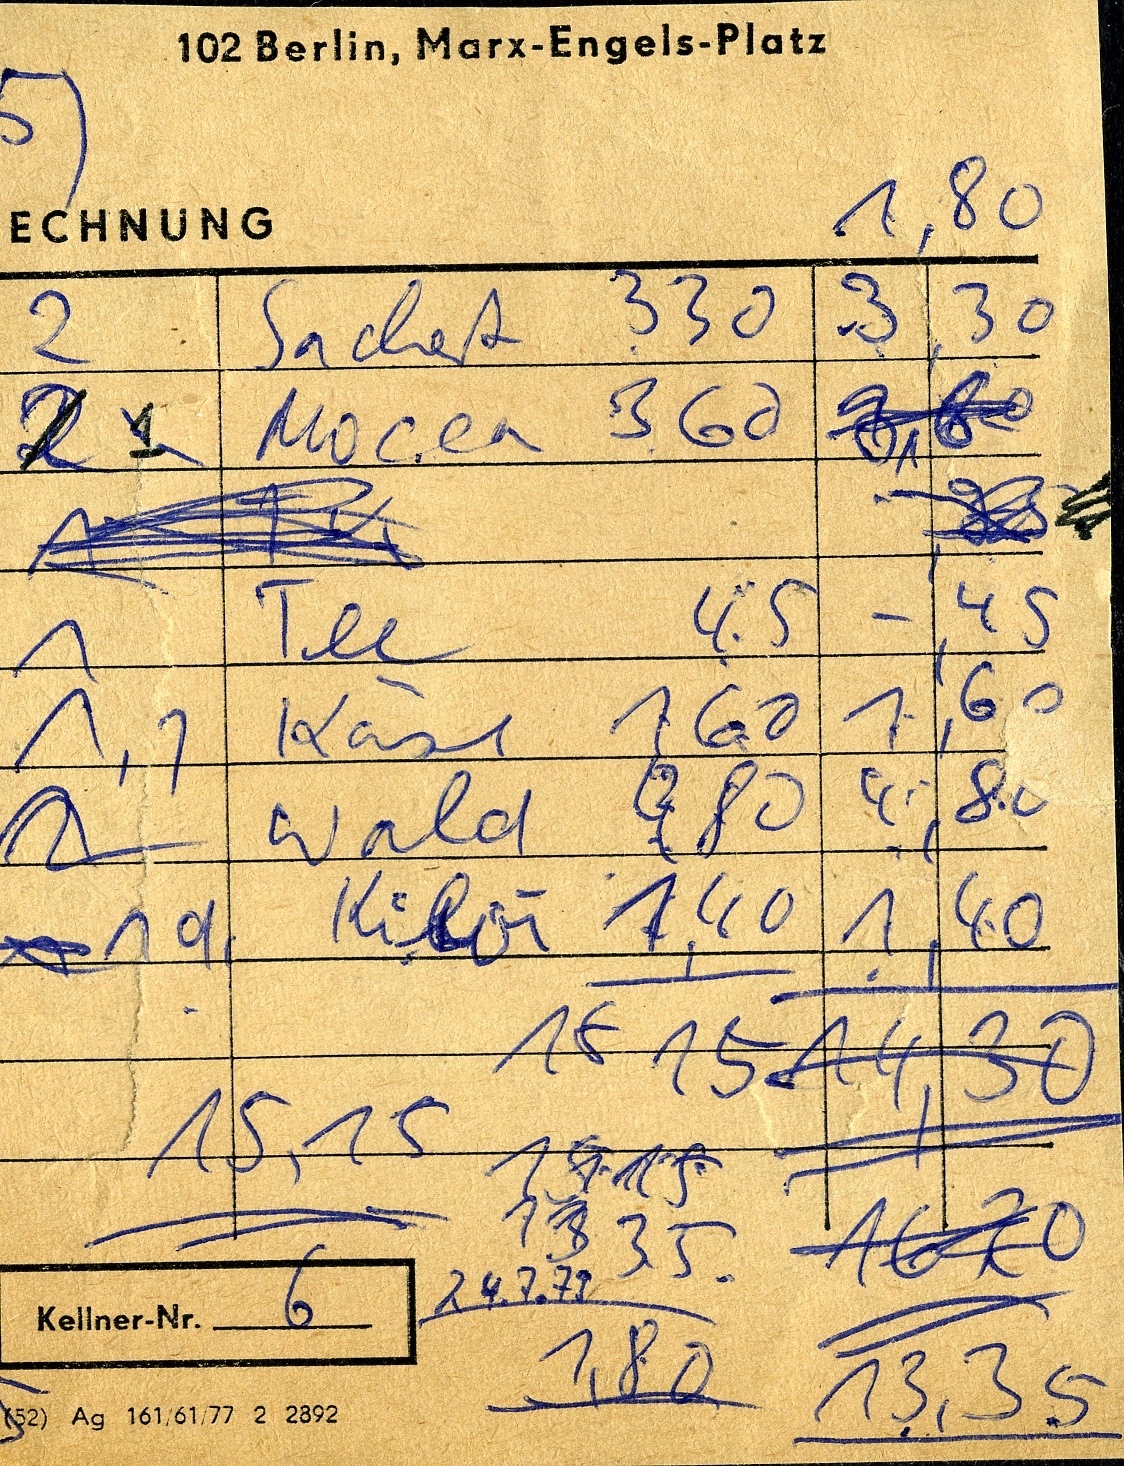 102 Berlin, Marx-Engels-Platz
5)
ECHNUNG
1,80
2 Sachert 330 3,30
2 1 Mocca 360
1
1 Tee 45 -,45
1,1 Käse 160 1,60
2 Wald 480 4,80
1 1,40 1,40
15 15 14,30
15,15
15 15
13 35. 16 20
24.7.79
Kellner-Nr. 6
1,80 13,35
(52) Ag 161/61/77 2 2892